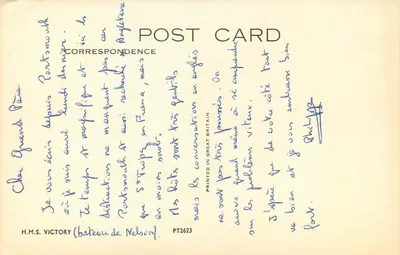 POST CARD
CORRESPONDENCE
Cher Grand Père
Je vous écris depuis Portsmouth
où je suis arrivé lundi dernier.
Le temps est magnifique et ici les
distractions ne manquent pas car
Portsmouth est aussi recherché en Angleterre
que St Tropez en France, mais
en moins snob.
Mes hôtes sont très gentils
mais les conversations en anglais
ne sont pas très poussées. On
arrive quand même à se comprendre
sur les problèmes vitaux.
J'espère que de votre côté tout
va bien et je vous embrasse bien
fort.
Philippe
PRINTED IN GREAT BRITAIN
H.M.S. VICTORY (bateau de Nelson) PT2623